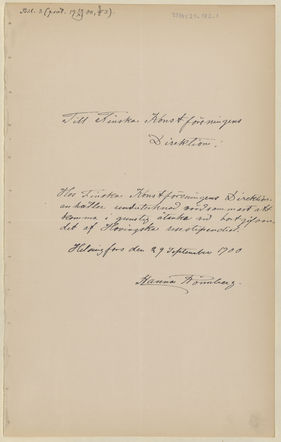 Till Finska Konstföreningens
Direktion.
Hos Finska Konstföreningens Direktion
anhåller undertecknad vördsammast att
komma i gunstig åtanke vid bortgifvan-
det af Hovingska resestipendiet.
Helsingfors den 29 September 1900
Hanna Rönnberg.